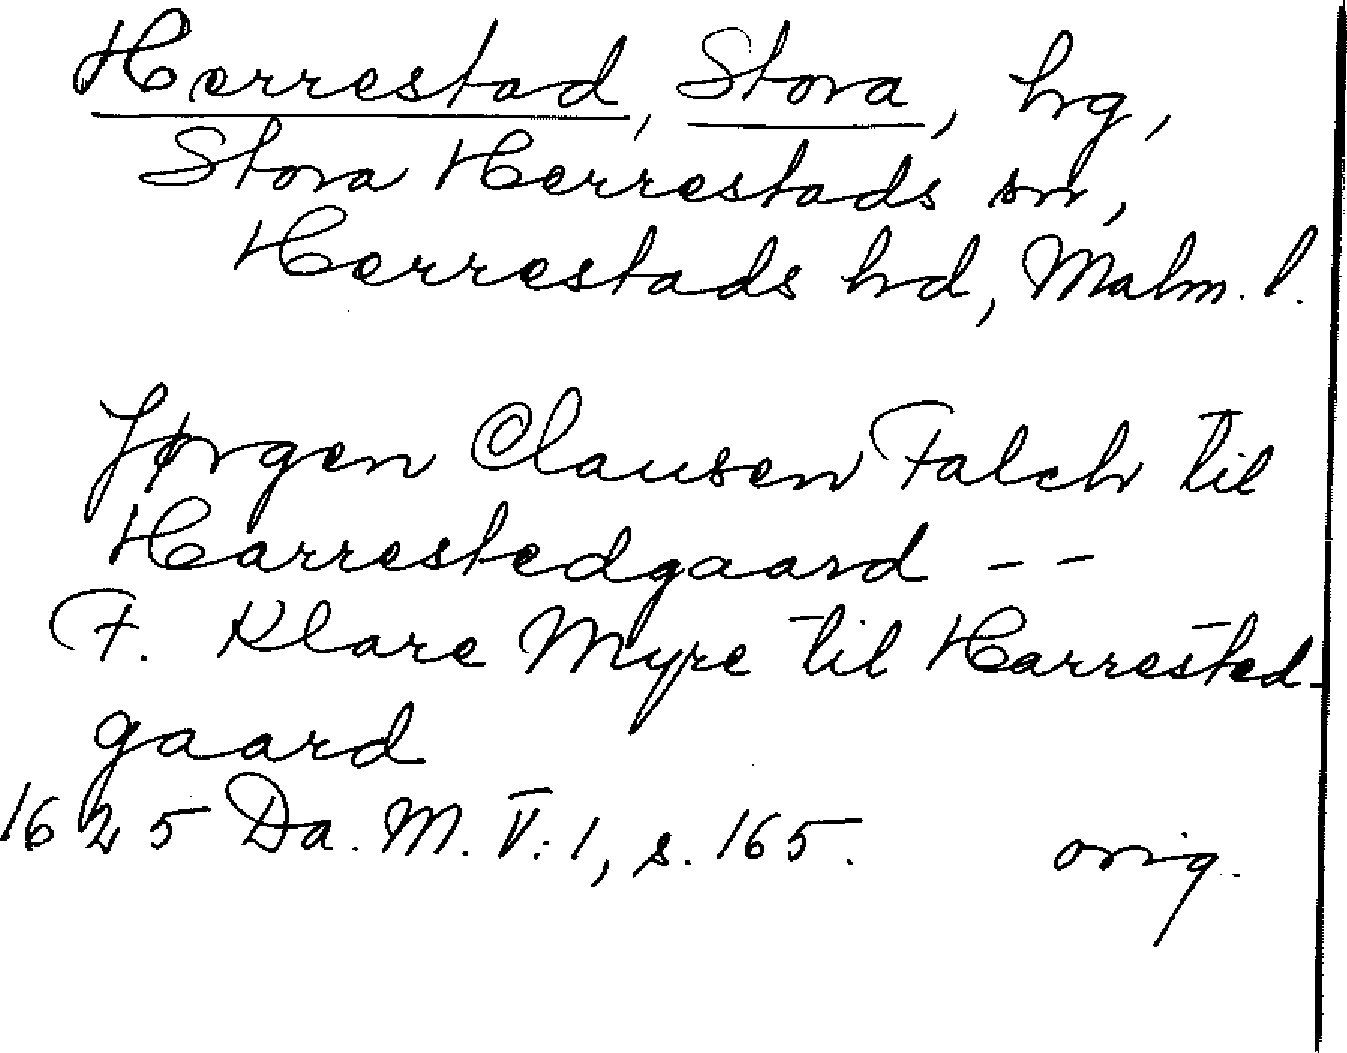 Herrestad, Stora, hg,
Stora Herrestads sn,
Herrestads hd, Malm. l.
Jørgen Clausen Falch til
Harrestedgaard - -
F. Klare Myre til Harrested-
gaard
1625 Da. M. V:1, s. 165. orig.